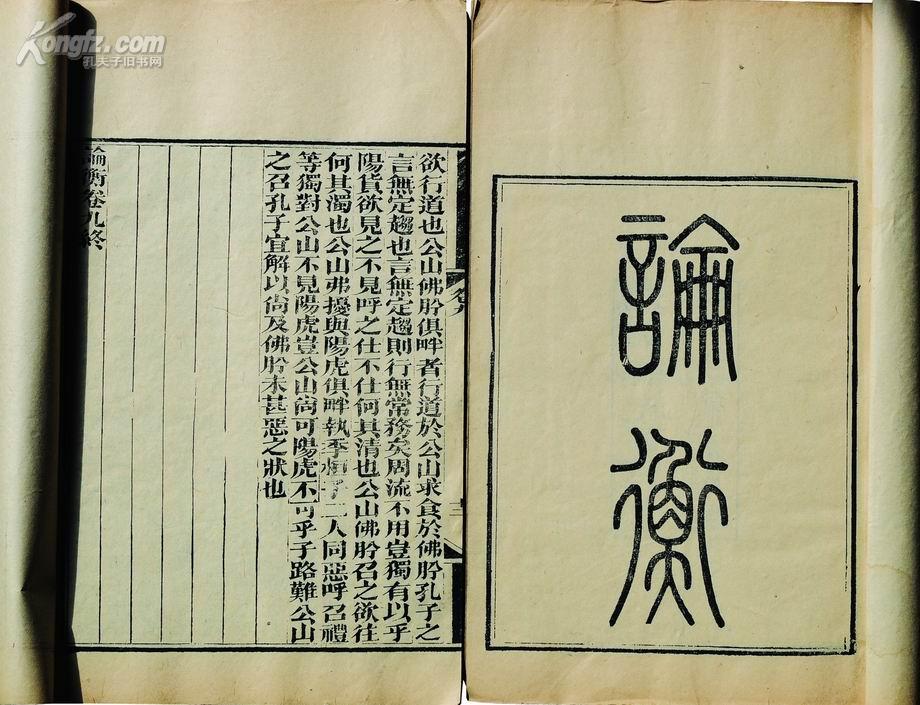 Kongfz.com
孔夫子旧书网
論衡
欲行道也公山佛肸俱畔者行道於公山求食於佛肸孔子之
言無定趨也言無定趨則行無常務矣周流不用豈獨有以乎
陽貨欲見之不見呼之仕不仕何其清也公山佛肸召之欲往
何其濁也公山弗擾與陽虎俱畔執季桓子二人同惡呼召禮
等獨對公山不見陽虎豈公山尚可陽虎不可乎子路難公山
之召孔子宜解以尚及佛肸未甚惡之狀也
論衡卷九終
卷九